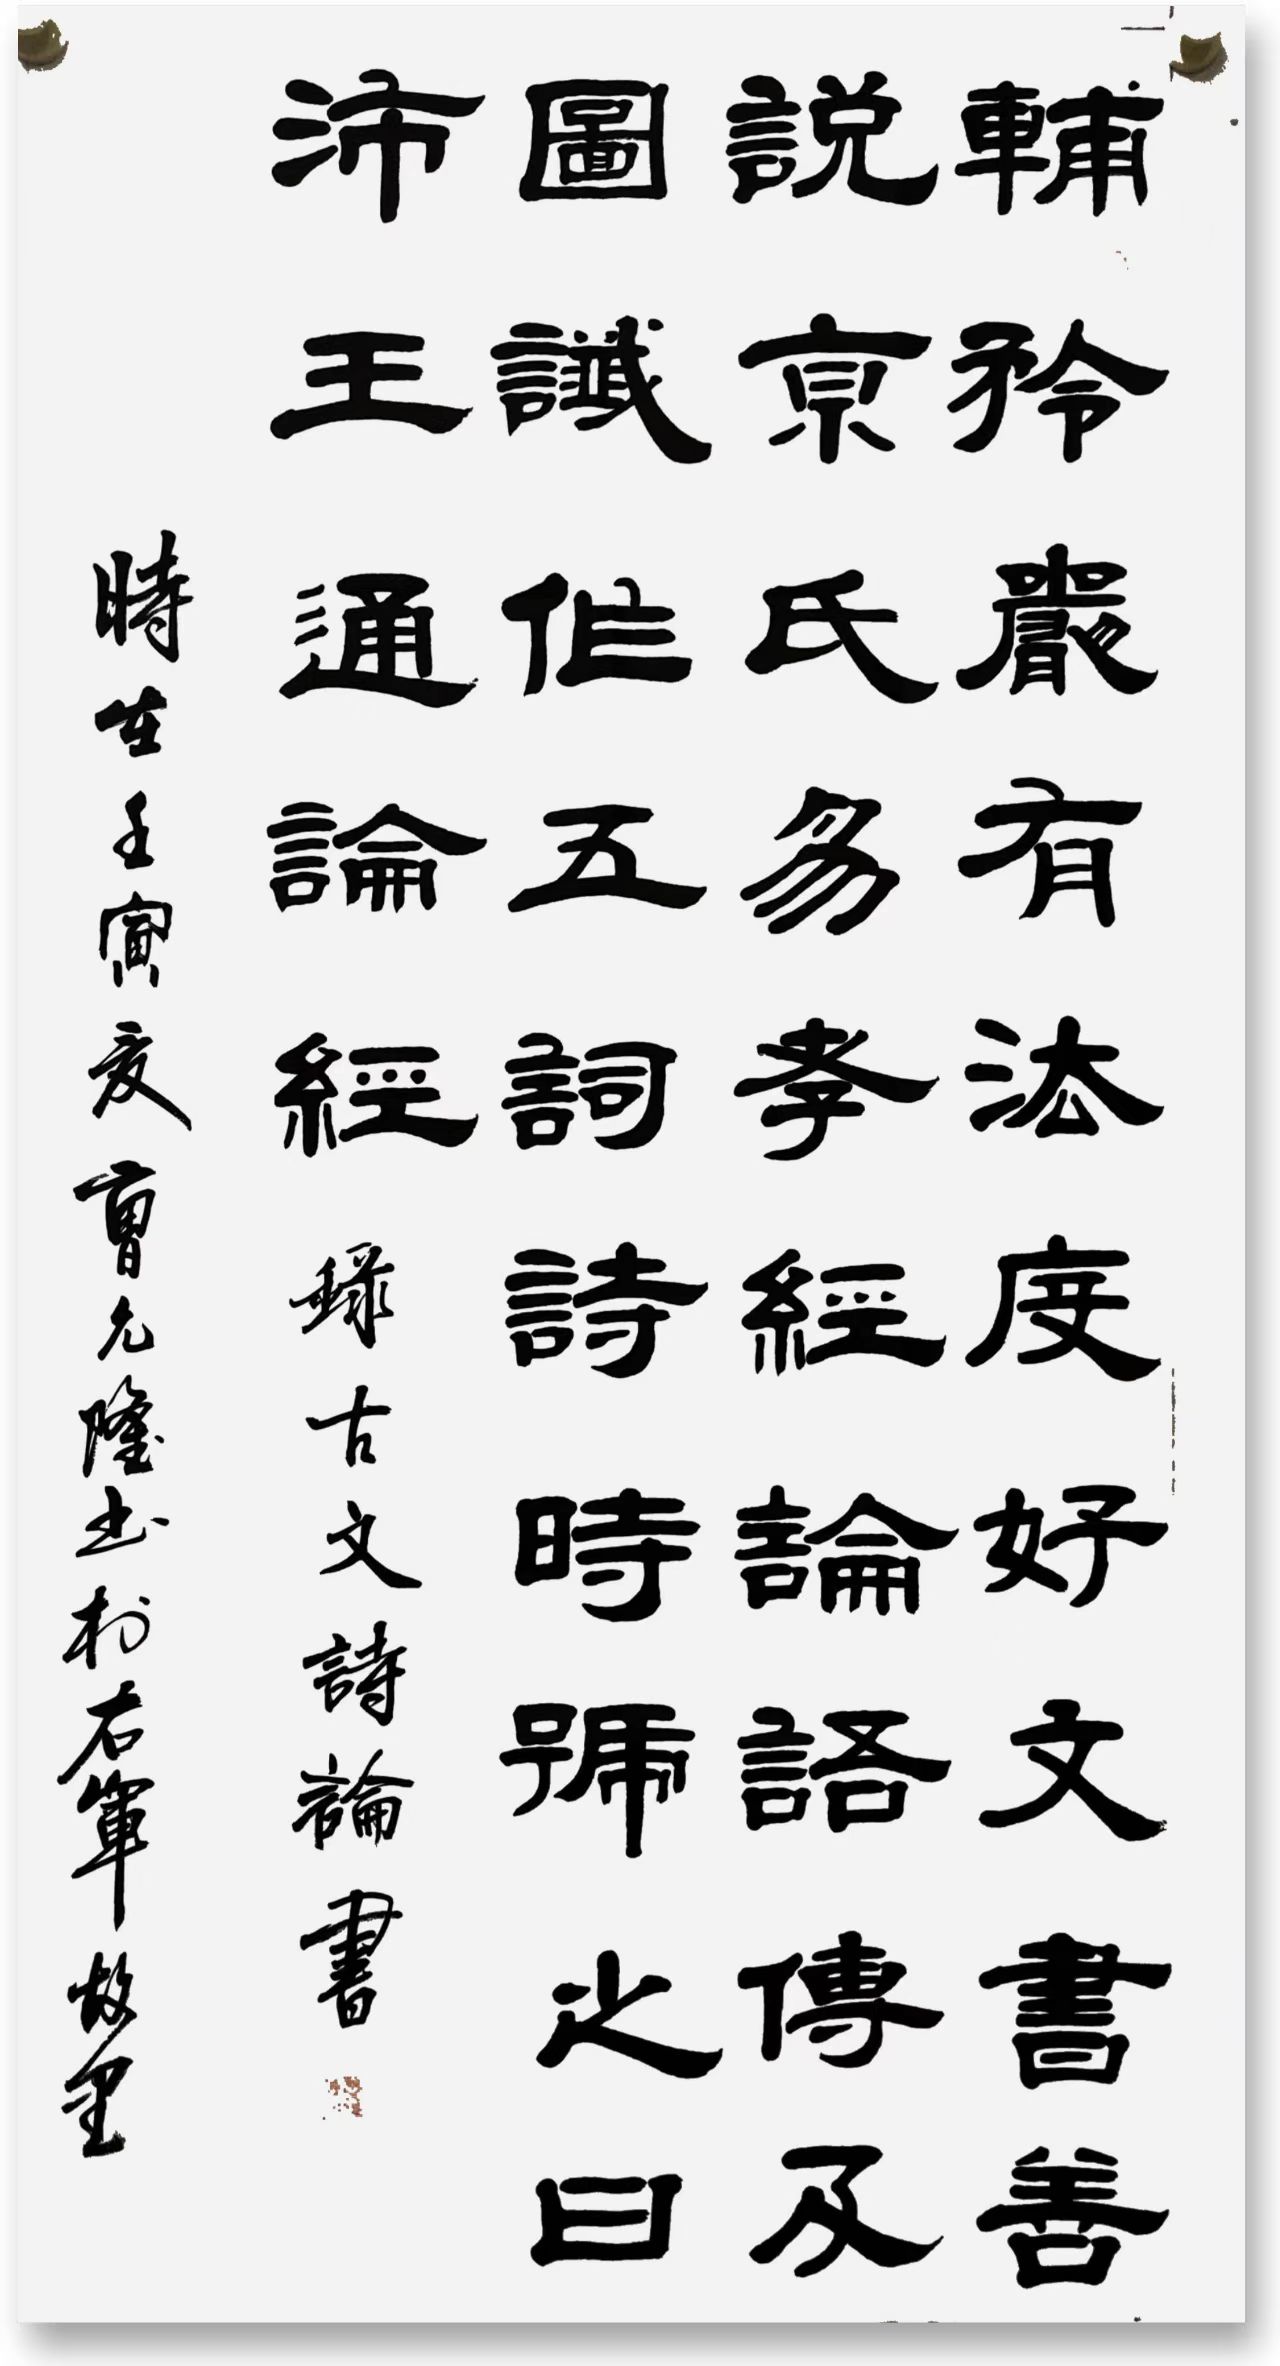 輔矜嚴有法度好文書善
説京氏易孝經論語傳及
圖讖作五詞詩時號之曰
沛王通論經 錄古文詩論書
時在壬寅夏曹允隆書於右軍故里